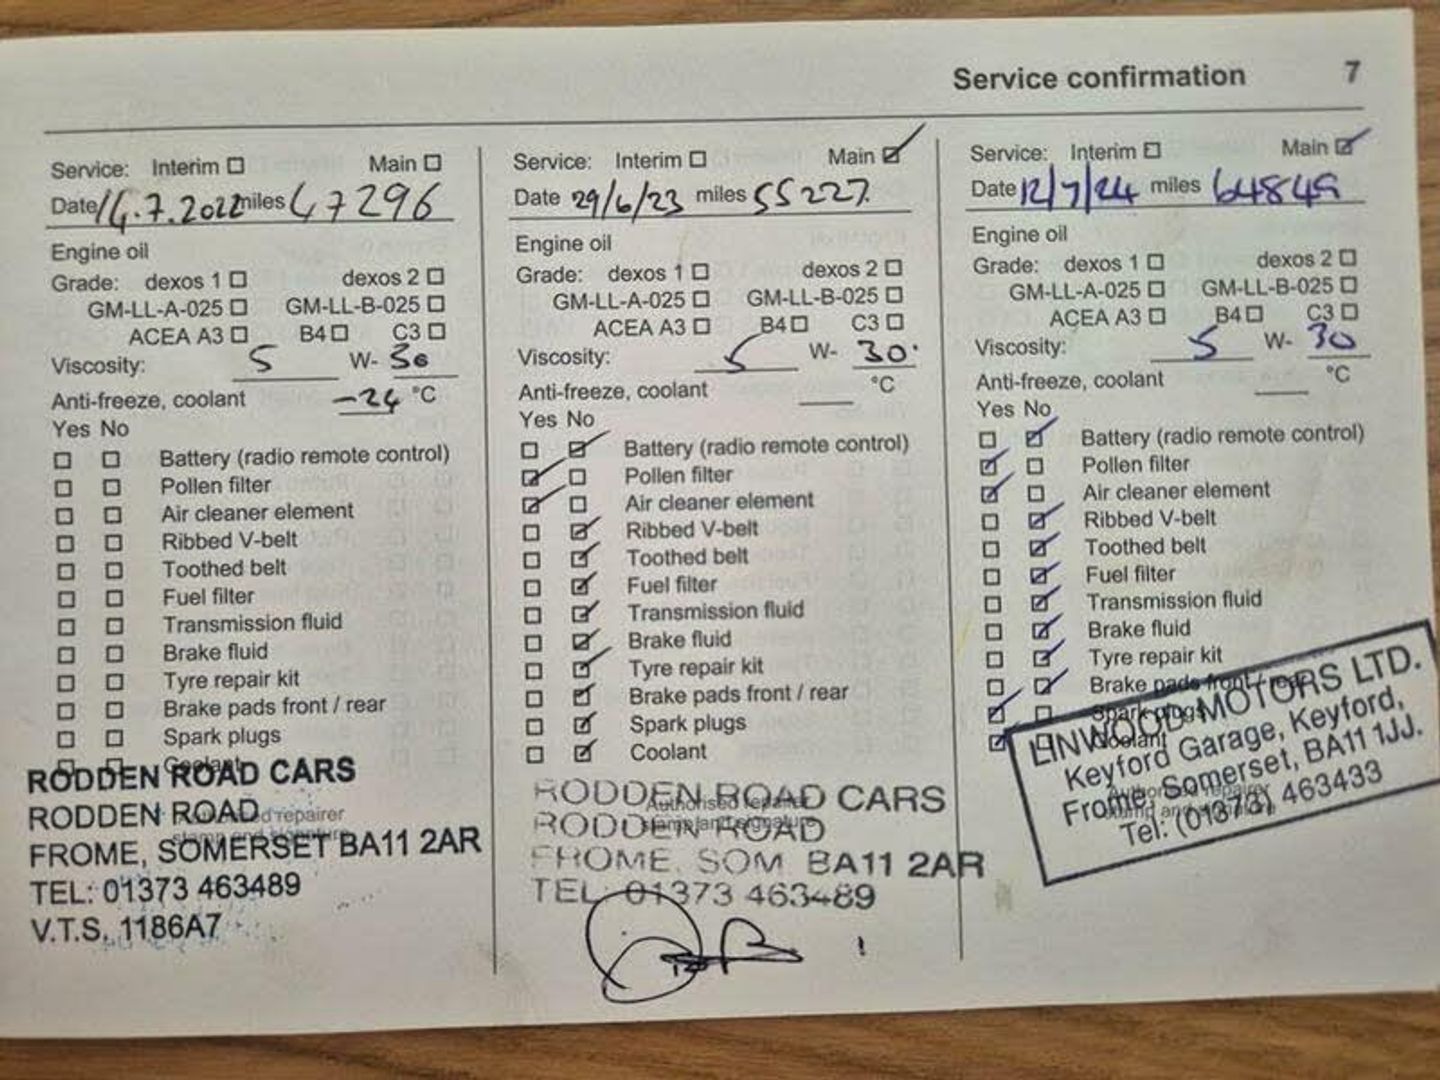 Service confirmation 7
Service: Interim Main
Date 14.7.2022 miles 47296
Engine oil
Grade: dexos 1 dexos 2
GM-LL-A-025 GM-LL-B-025
ACEA A3 B4 C3
Viscosity: 5 W- 30
Anti-freeze, coolant -24 °C
Yes No
Battery (radio remote control)
Pollen filter
Air cleaner element
Ribbed V-belt
Toothed belt
Fuel filter
Transmission fluid
Brake fluid
Tyre repair kit
Brake pads front / rear
Spark plugs
Coolant
RODDEN ROAD CARS
RODDEN ROAD
Authorised repairer
stamp and signature
FROME, SOMERSET BA11 2AR
TEL: 01373 463489
V.T.S. 1186A7
Service: Interim Main
Date 29/6/23 miles 55227
Engine oil
Grade: dexos 1 dexos 2
GM-LL-A-025 GM-LL-B-025
ACEA A3 B4 C3
Viscosity: 5 W- 30
Anti-freeze, coolant °C
Yes No
Battery (radio remote control)
Pollen filter
Air cleaner element
Ribbed V-belt
Toothed belt
Fuel filter
Transmission fluid
Brake fluid
Tyre repair kit
Brake pads front / rear
Spark plugs
Coolant
RODDEN ROAD CARS
Authorised repairer
RODDEN ROAD
stamp and signature
FROME, SOM BA11 2AR
TEL 01373 463489
Service: Interim Main
Date 12/7/24 miles 64849
Engine oil
Grade: dexos 1 dexos 2
GM-LL-A-025 GM-LL-B-025
ACEA A3 B4 C3
Viscosity: 5 W- 30
Anti-freeze, coolant °C
Yes No
Battery (radio remote control)
Pollen filter
Air cleaner element
Ribbed V-belt
Toothed belt
Fuel filter
Transmission fluid
Brake fluid
Tyre repair kit
Brake pads front / rear
Spark plugs
Coolant
LINWOOD MOTORS LTD.
Keyford Garage, Keyford,
Frome, Somerset, BA11 1JJ.
Tel: (01373) 463433
Authorised repairer
stamp and signature